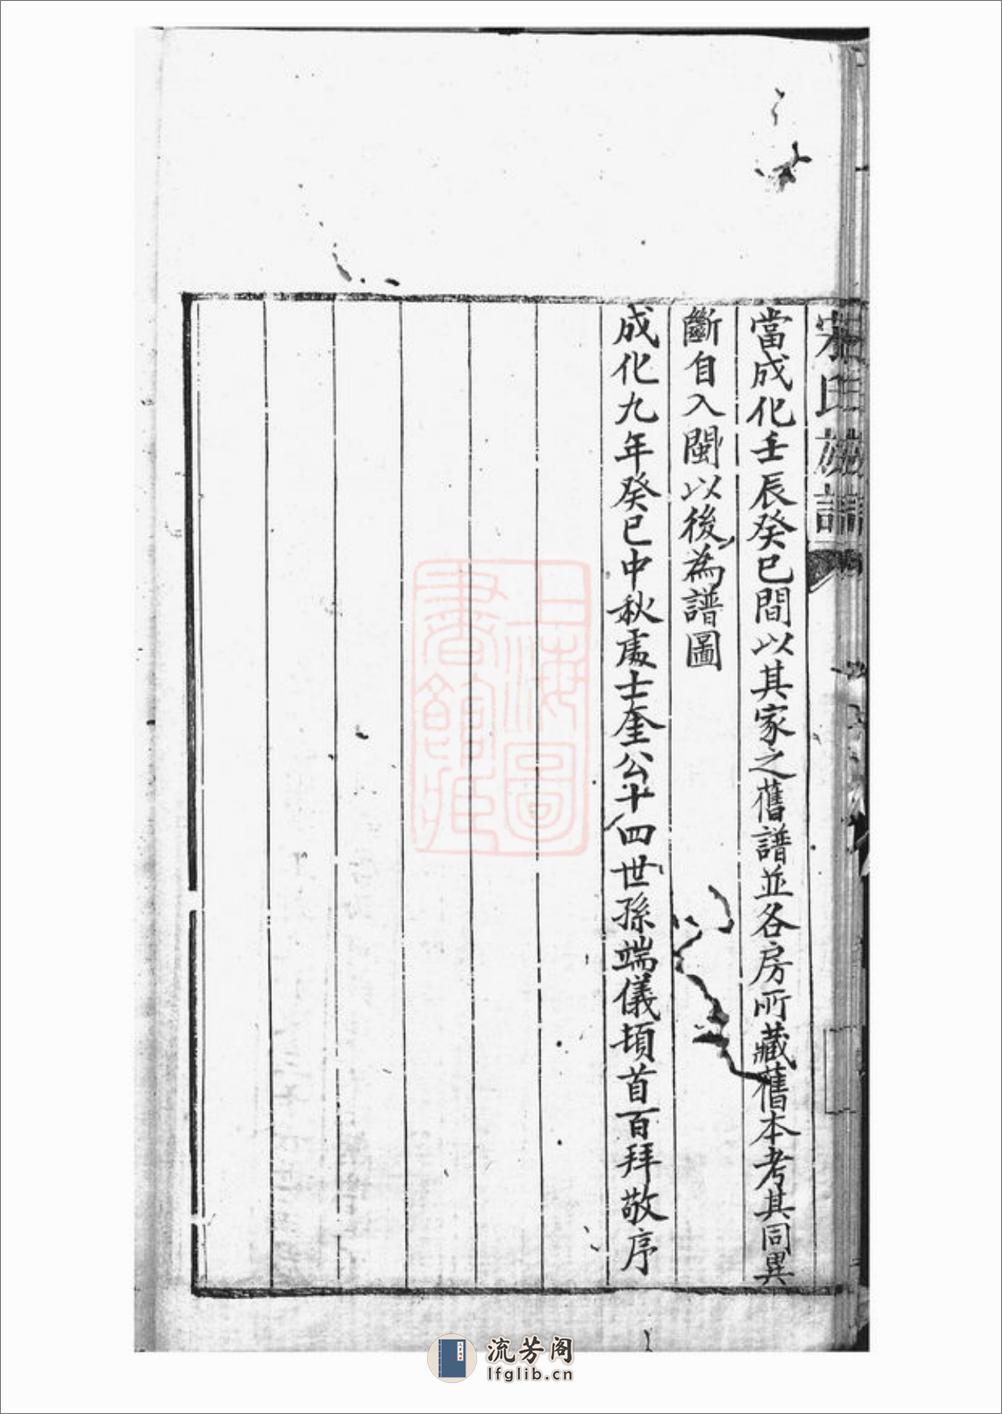 氏族譜
當成化壬辰癸巳間以其家之舊譜並各房所藏舊本考其同異
斷自入閩以後為譜圖
成化九年癸巳中秋處士奎公十四世孫端儀頓首百拜敬序
上海圖
書館藏
流芳阁
lfglib.cn